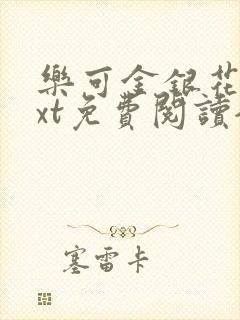 樂可金銀花
xt免費閱讀
塞雷卡